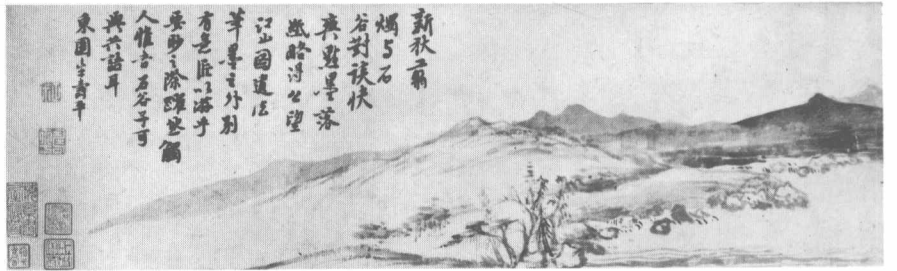 新秋翦
燭与石
谷對談快
點墨落
略得公望
江山圖遺法
筆墨之外別
有意匠以游乎
要眇之際雖然觸
人惟吾石谷子可
與共語耳
東園生壽平